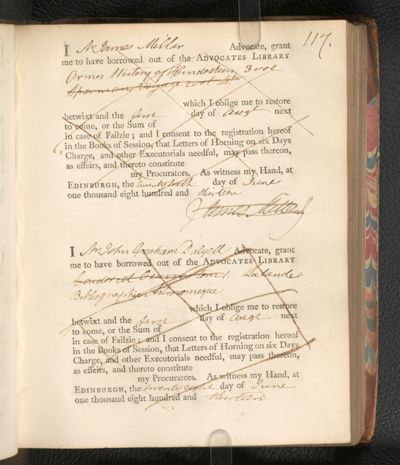 117.
I Mr James Millar Advocate, grant
me to have borrowed out of the ADVOCATES LIBRARY
Ormes History of Hindostan 3 vol
which I oblige me to restore
betwixt and the first day of Augt next
to come, or the Sum of
in case of Failzie; and I consent to the registration hereof
in the Books of Session, that Letters of Horning on six Days
Charge, and other Executorials needful, may pass thereon,
as effeirs, and thereto constitute
my Procurators. As witness my Hand, at
EDINBURGH, the day of June
one thousand eight hundred and thirteen
James Millar
I Mr John Graham Dalyell Advocate, grant
me to have borrowed out of the ADVOCATES LIBRARY
Lalande
Bibliographie Astronomique
which I oblige me to restore
betwixt and the first day of Augt next
to come, or the Sum of
in case of Failzie; and I consent to the registration hereof
in the Books of Session, that Letters of Horning on six Days
Charge, and other Executorials needful, may pass thereon,
as effeirs, and thereto constitute
my Procurators. As witness my Hand, at
EDINBURGH, the twenty eight day of June
one thousand eight hundred and thirteen